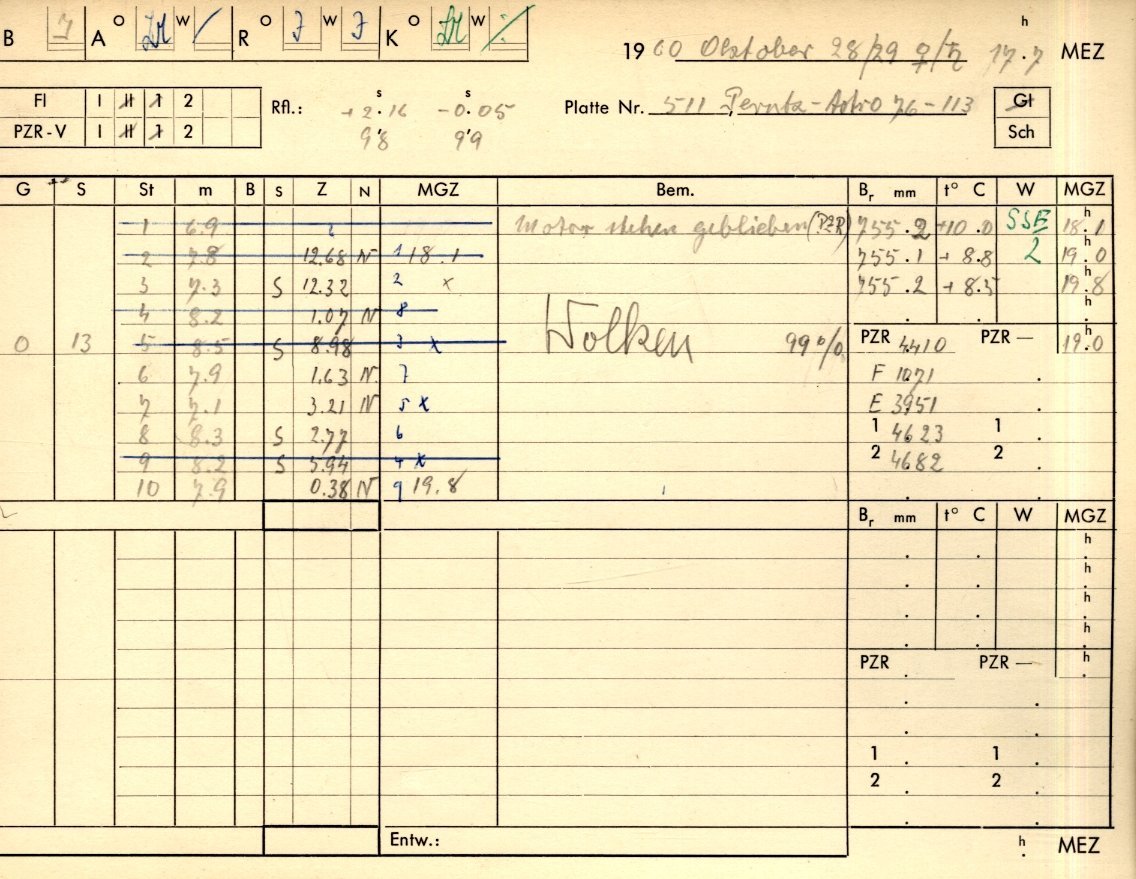 B J A o LM w / R o J w J K o LM w ∕. 1960 Oktober 28/29 ♀/♄ 17.7 h MEZ
Fl I II 1 2 Rfl.: +2.16 s -0.05 s Platte Nr. 511, Perutz-Astro 76-113 Gl
PZR-V I II 1 2 9.8 9.9 Sch
G S St m B S Z N MGZ Bem. Br mm t° C W MGZ
1 6.9 Motor stehen geblieben (PZR) 755.2 +10.0 SSE 18.1 h
2 7.8 12.68 N 1 18.1 755.1 +8.8 2 19.0 h
3 7.3 S 12.32 2 x 755.2 +8.5 19.8 h
4 8.2 1.07 N 8 . . h
0 13 5 8.5 S 8.98 3 x Wolken 99% PZR 4410 PZR — 19.0 h
6 7.9 1.63 N 7 F 1071 .
7 7.1 3.21 N 5 x E 3951 .
8 8.3 S 2.77 6 1 4623 1 .
9 8.2 S 5.94 4 x 2 4682 2 .
10 7.9 0.38 N 9 19.8 . .
Br mm t° C W MGZ
. . h
. . h
. . h
. . h
PZR . PZR — h
. .
. .
1 . 1 .
2 . 2 .
. .
Entw.: h MEZ